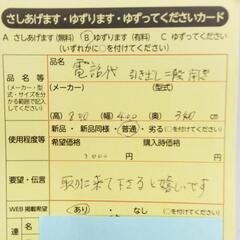 さしあげます・ゆずります・ゆずってくださいカード
A さしあげます（無料） B ゆずります（有料） C ゆずってください
（いずれかに○を付けてください）
品名等
（メーカー・型式・サイズを分かる範囲で記入してください）
電話代 引き出し二段
（メーカー）　（型式）
（高さ 　（幅） 400 （奥） 3
使用程度等
新品・新品同様・普通・劣る（○を付けてください）
希望価格　購入時価格
1000円
要望・伝言
取りに来て下さると嬉しいです
WEB掲載希望
あり・なし